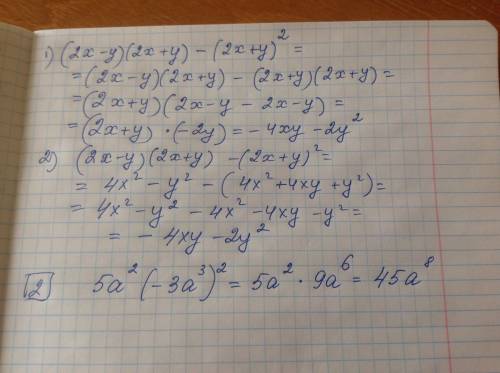 1) (2x-y)(2x+y) - (2x+y)² =
= (2x-y)(2x+y) - (2x+y)(2x+y) =
= (2x+y)(2x-y - 2x-y) =
= (2x+y) · (-2y) = - 4xy - 2y²
2) (2x-y)(2x+y) - (2x+y)² =
= 4x² - y² - (4x² + 4xy + y²) =
= 4x² - y² - 4x² - 4xy - y² =
= - 4xy - 2y²
2 5a² (-3a³)² = 5a² · 9a⁶ = 45a⁸